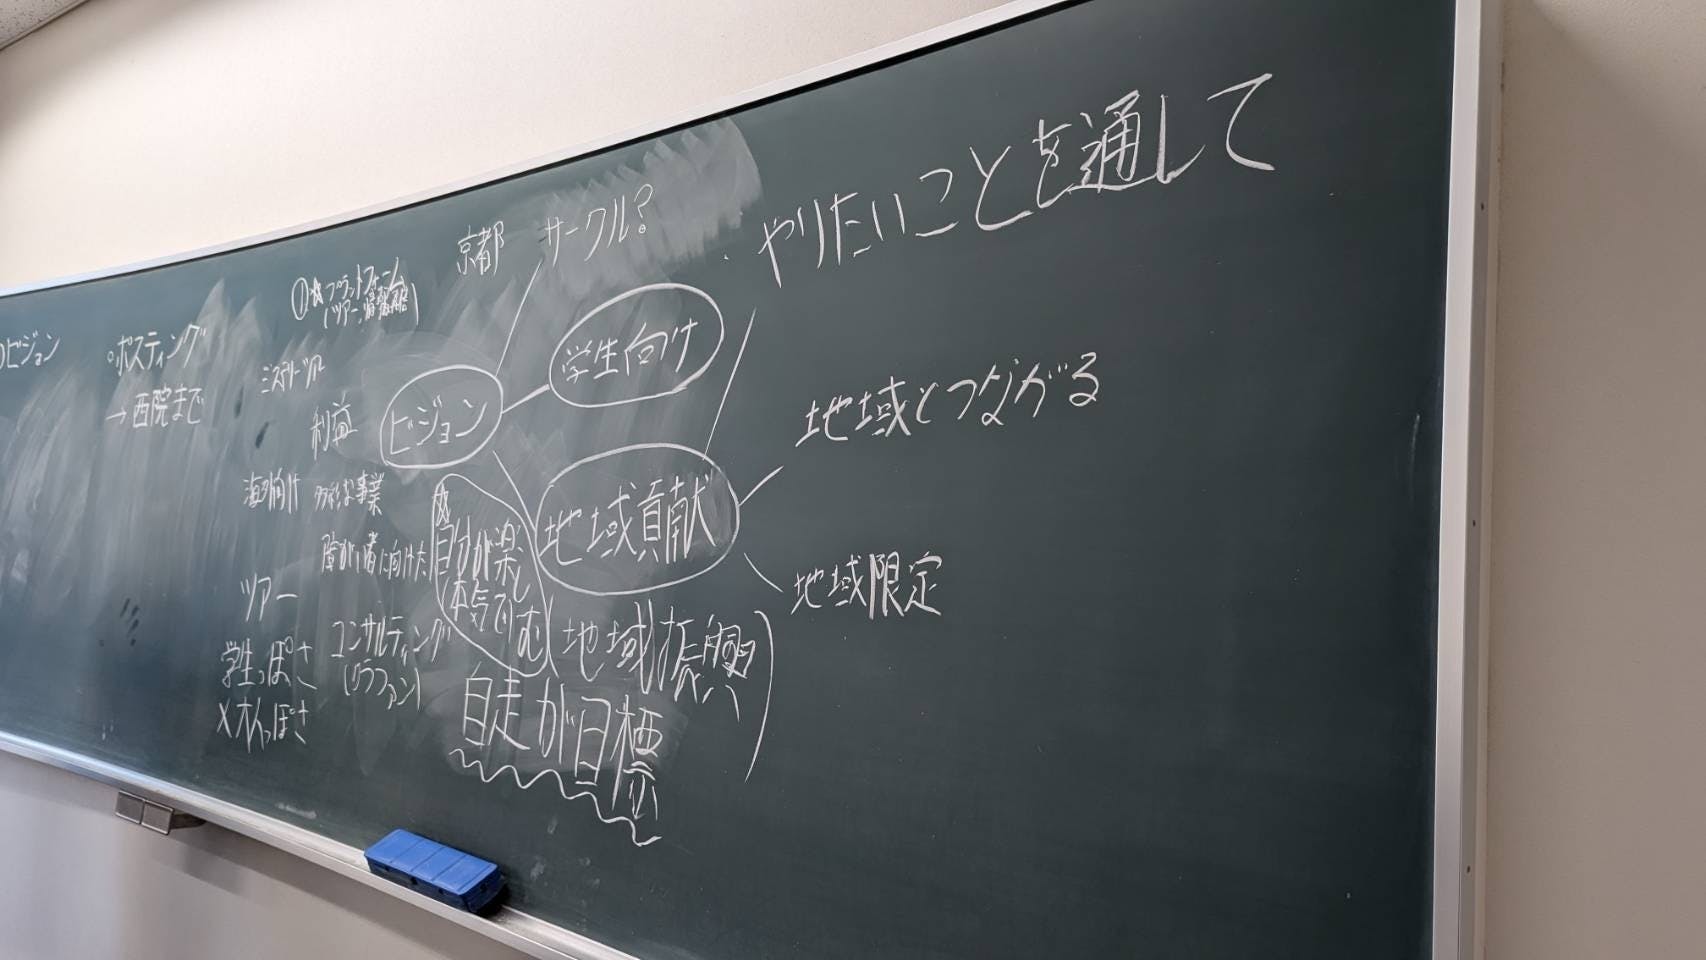 ビジョン
ポスティング
→西院まで
①☆プラットフォーム
(ツアー、情報発信)
ミステリーツアー
利益
海外向け
多彩な事業
障がい者に向けた
ツアー
学生っぽさ
×大人っぽさ
コンサルティング
(クラファン)
京都 サークル?
ビジョン
学生向け
☆
自分が楽しむ
本気で
地域貢献
(地域振興)
自走が目標
やりたいことを通して
地域とつながる
地域限定